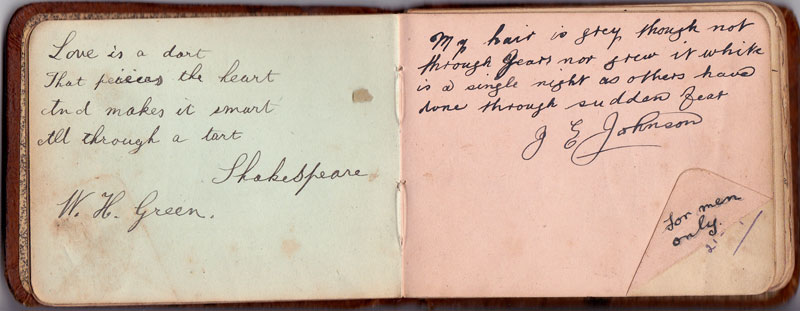 Love is a dart
That peiices the heart
And makes it smart
All through a tart
Shakespeare
W. H. Green.
My hair is grey though not
through Years nor grew it white
is a single night as others have
done through sudden fear
J E Johnson
for men
only